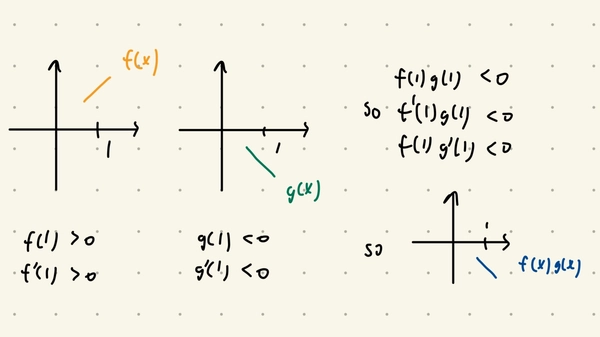 f(x)
1
f(1) >0
f'(1) >0
1
g(x)
g(1) <0
g'(1) <0
f(1)g(1) <0
so f'(1)g(1) <0
f(1)g'(1) <0
so
1
f(x).g(x)